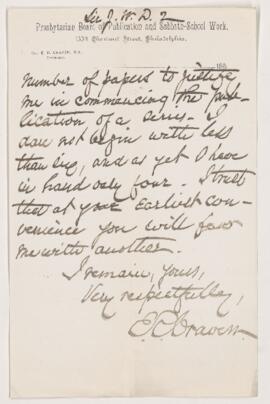 Sir J. W. D. 2
Presbyterian Board of Publication and Sabbath-School Work,
1334 Chestnut Street, Philadelphia.
188
number of papers to justify
me in commencing the pub-
lication of a series. I
dare not begin with less
than six, and as yet I have
in hand only four. I trust
that at your earliest con-
venience you will favor
me with another.
I remain, yours,
Very respectfully,
E. R. Craven.